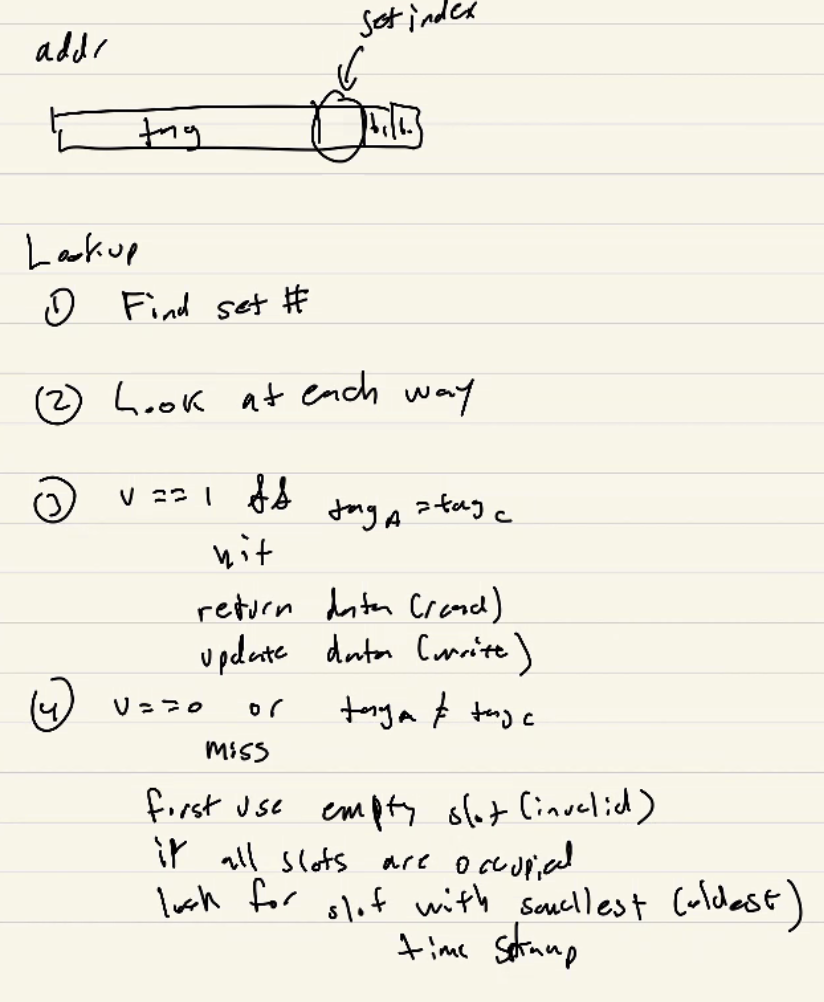 set index
addr
tag b.l b.
Lookup
① Find set #
② Look at each way
③ v == 1 && tag A = tag C
hit
return data (read)
update data (write)
④ v == 0 or tag A ≠ tag C
miss
first use empty slot (invalid)
if all slots are occupied
look for slot with smallest (oldest)
time stamp